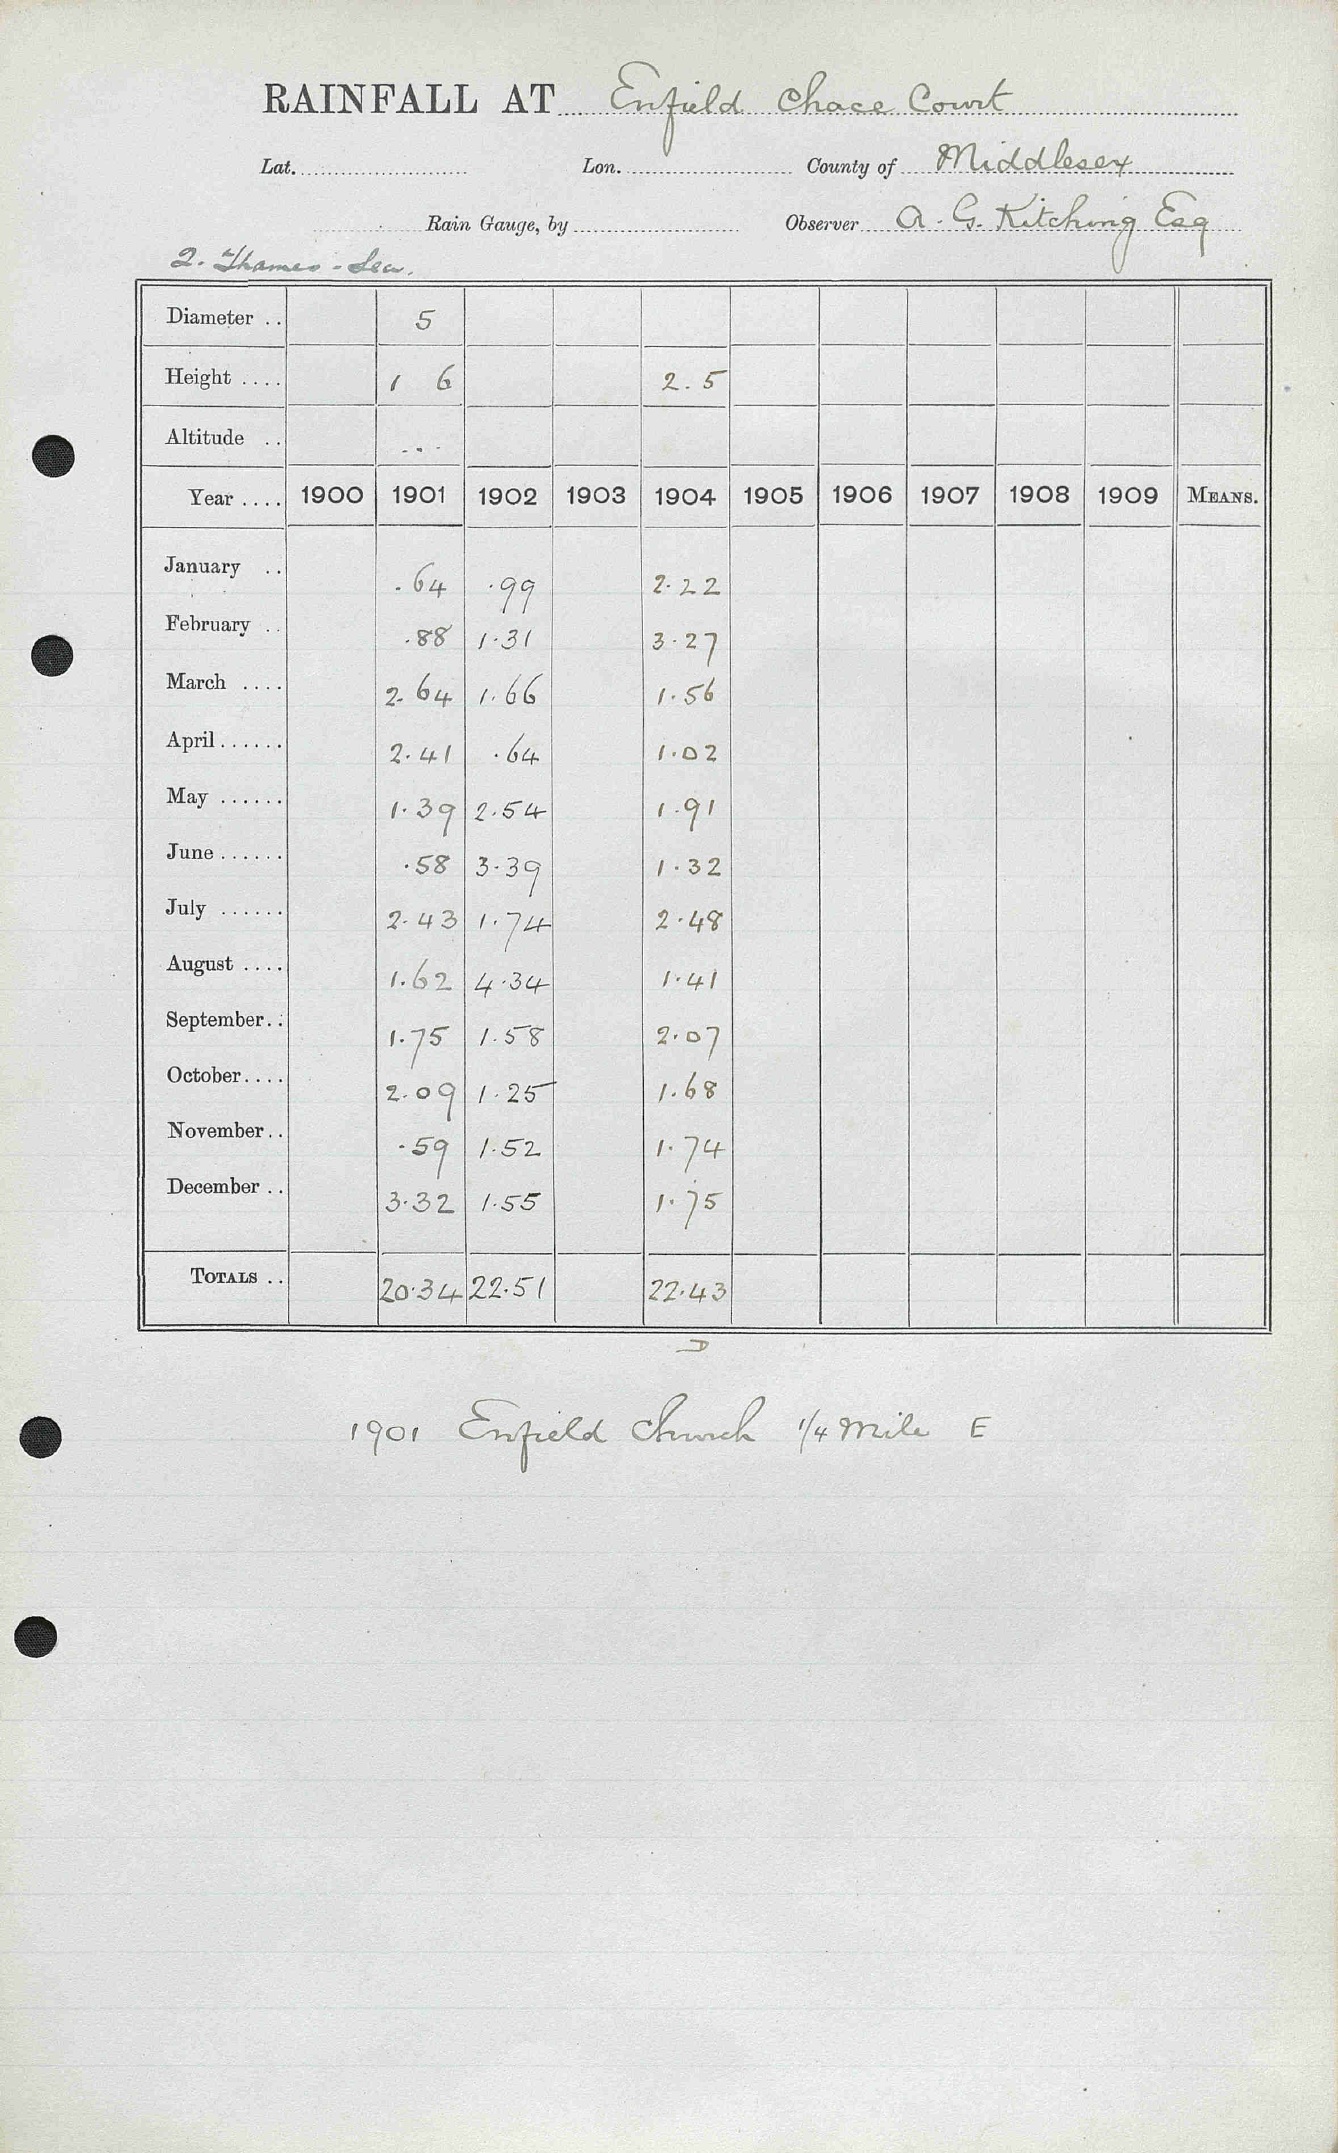 RAINFALL AT Enfield Chace Court
Lat. Lon. County of Middlesex
Rain Gauge, by Observer A. G. Kitching Esq
2. Thames - Lea.
Diameter .. 5
Height .... 1 6 2.5
Altitude .. ...
Year .... 1900 1901 1902 1903 1904 1905 1906 1907 1908 1909 MEANS.
January .. .64 .99 2.22
February .. .88 1.31 3.27
March .... 2.64 1.66 1.56
April...... 2.41 .64 1.02
May ...... 1.39 2.54 1.91
June...... .58 3.39 1.32
July ...... 2.43 1.74 2.48
August .... 1.62 4.34 1.41
September.. 1.75 1.58 2.07
October.... 2.09 1.25 1.68
November.. .59 1.52 1.74
December .. 3.32 1.55 1.75
TOTALS .. 20.34 22.51 22.43
D
1901 Enfield Church 1/4 Mile E